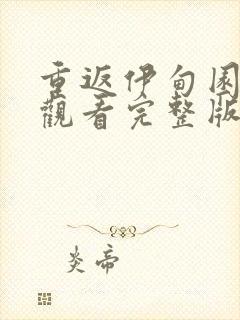 重返伊甸園
觀看完整版
炎帝